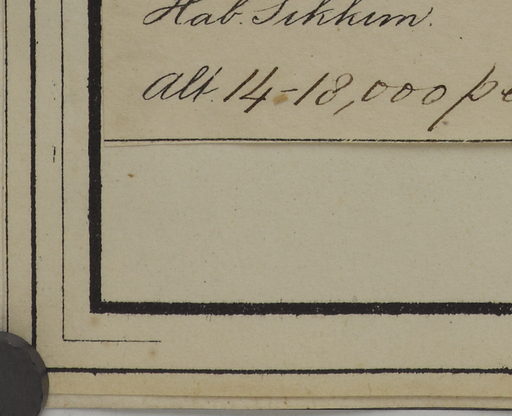 Hab. Sikkim.
Alt. 14-18,000 pe